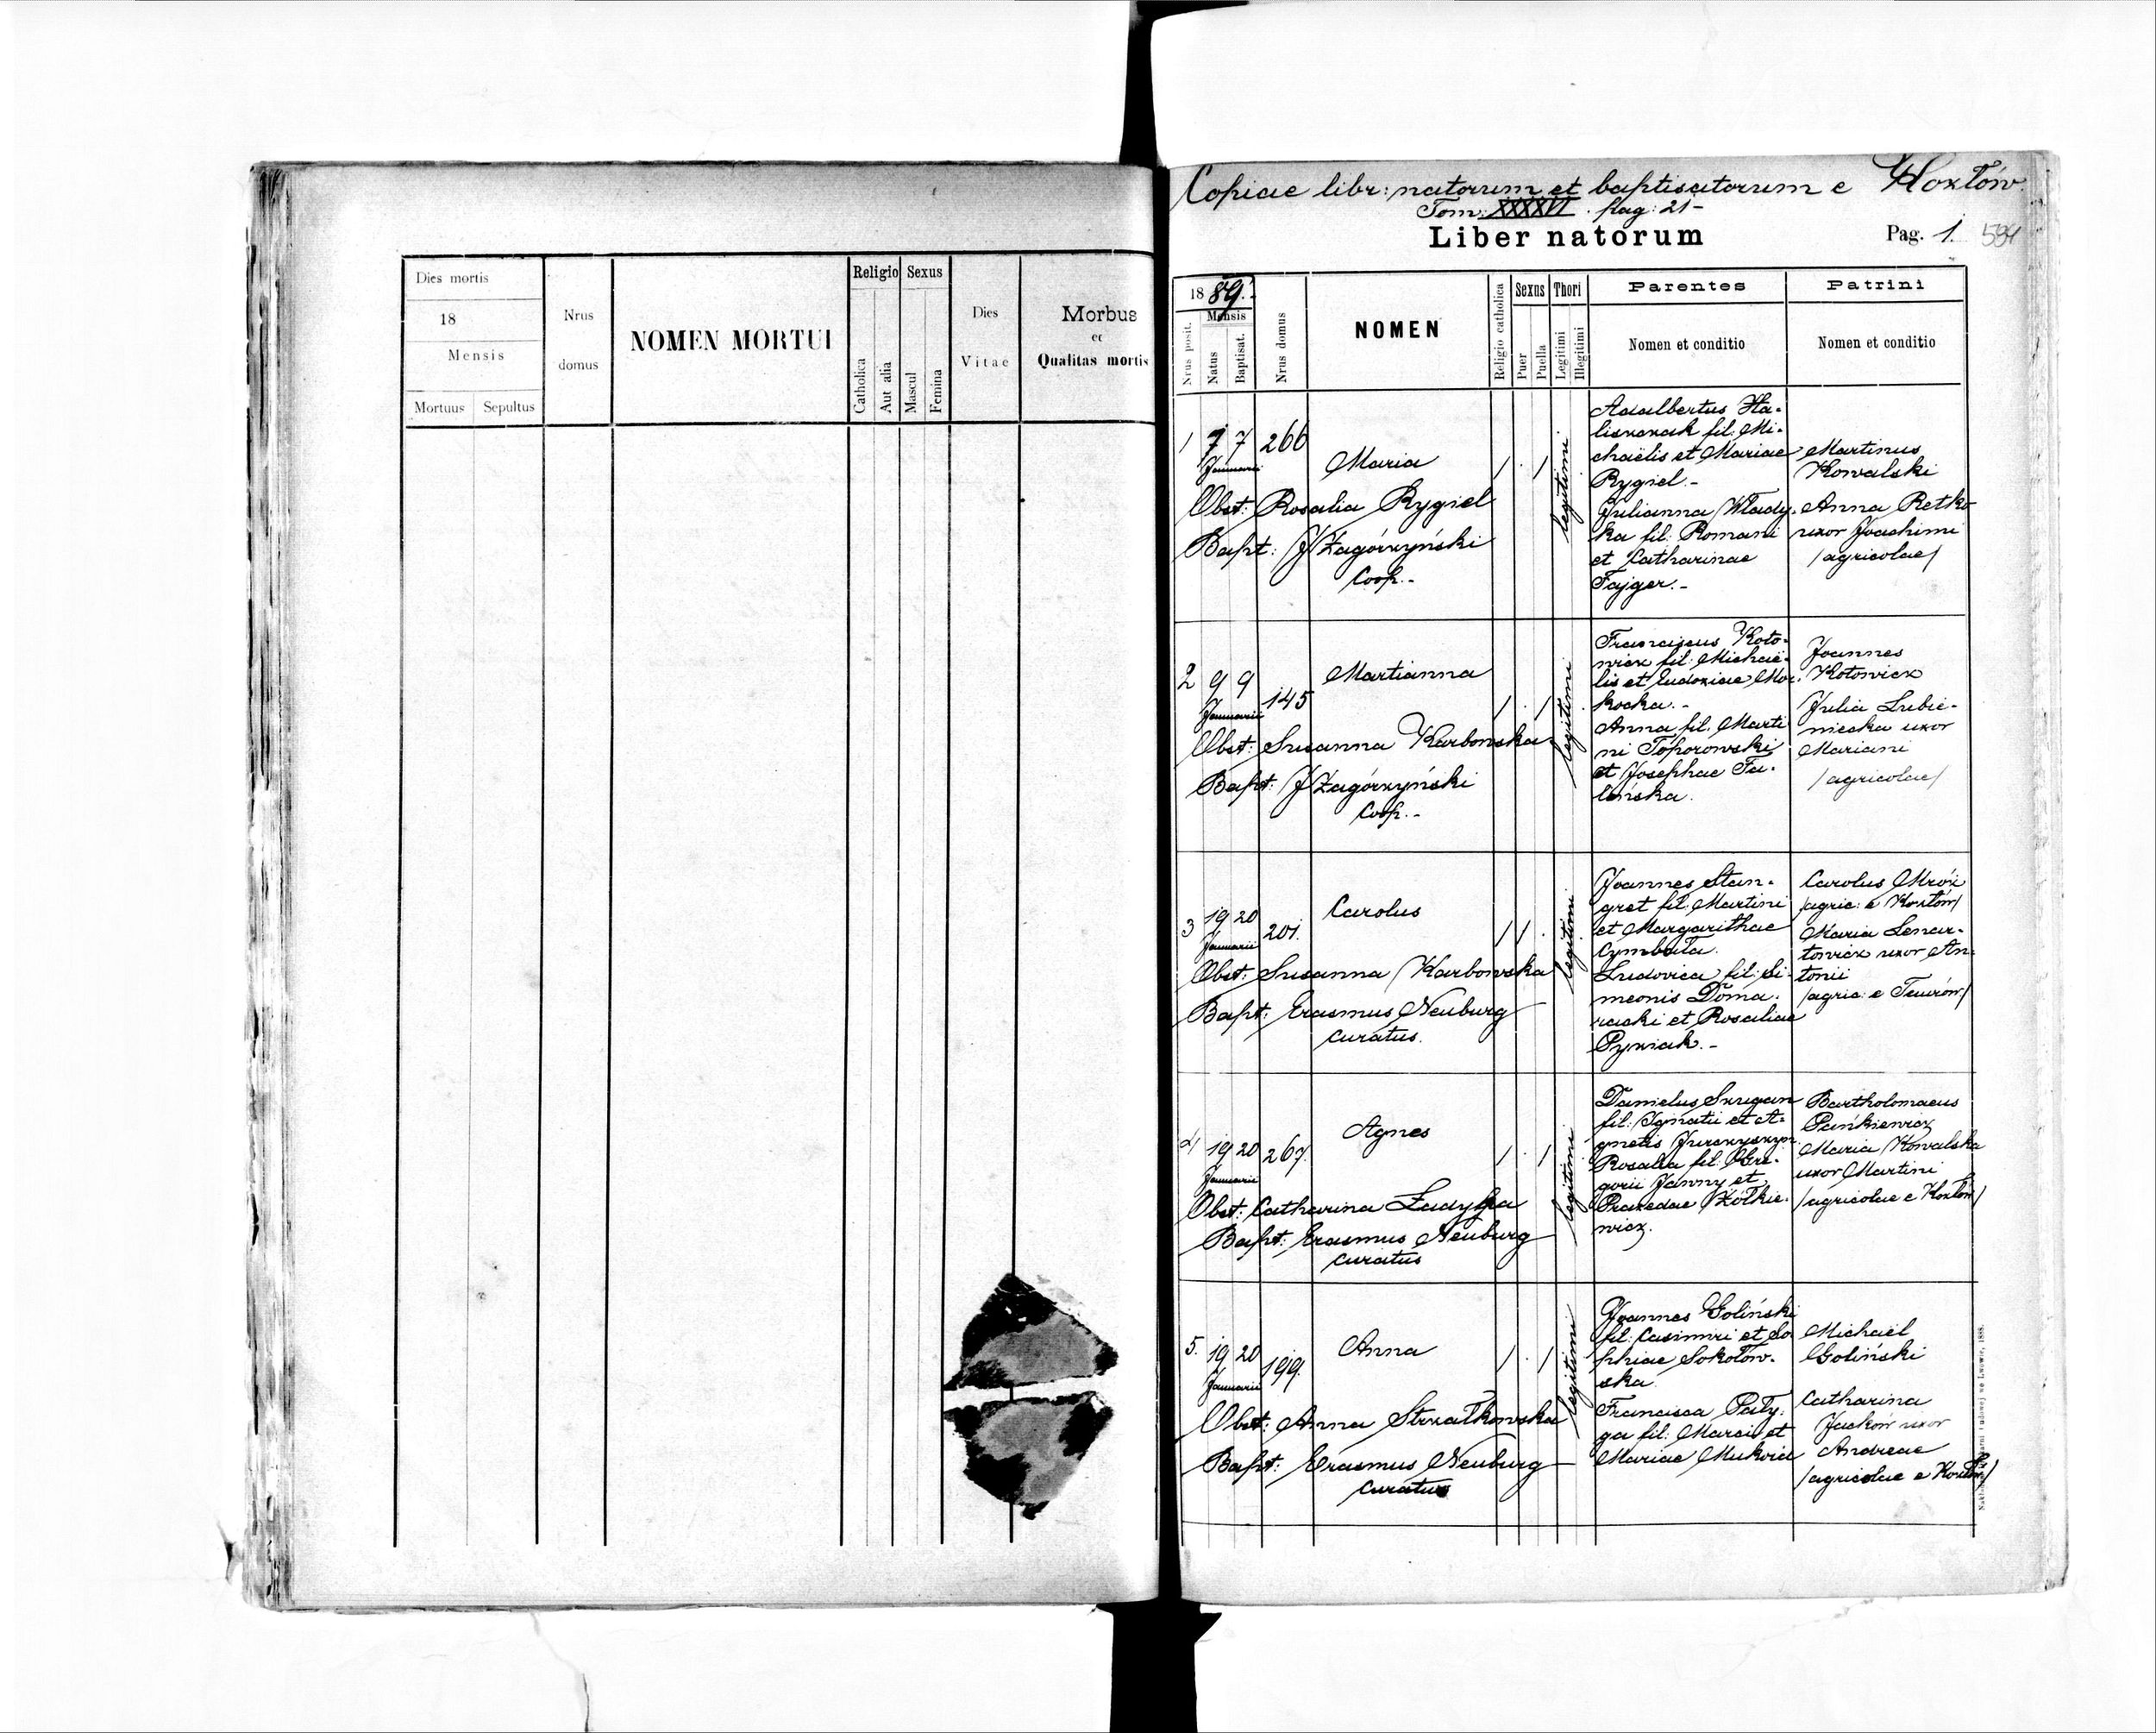 Dies mortis
18
Mensis
Mortuus Sepultus
Nrus
domus
NOMEN MORTUI
Religio Sexus
Catholica
Aut alia
Mascul
Femina
Dies
Vitae
Morbus
et
Qualitas mortis
Copiae libr: natorum et baptisatorum e Kozłów.
Tom: XXXXVI. pag: 21-
Liber natorum
Pag. 1. 594
1889.
Mensis
Nrus posit.
Natus
Baptisat.
Nrus domus
NOMEN
Religio catholica
Sexus
Puer
Puella
Thori
Legitimi
Illegitimi
Parentes
Nomen et conditio
Patrini
Nomen et conditio
1 7 7 266
Januarii
Maria
Obst: Rosalia Rygiel
Bapt: J Zagórzyński
Coop.-
legitimi
Adalbertus Ha-
liszczak fil: Mi-
chaëlis et Mariae
Rygiel.-
Julianna Włady-
ka fil: Romani
et Catharinae
Fajger.-
Martinus
Kowalski
Anna Retko
uxor Joachimi
/agricolae/
2 9 9 145
Januarii
Martianna
Obst: Susanna Karbowska
Bapt: J Zagórzyński
Coop.-
legitimi
Franciscus Koto-
wicz fil: Michaë-
lis et Eudoxiae Mo-
kocka.-
Anna fil. Marti
ni Toporowski
et Josephae Ta-
leńska.
Joannes
Kotowicz
Julia Lubie-
niecka uxor
Mariani
/agricolae/
3 19 20 201.
Januarii
Carolus
Obst: Susanna Karbowska
Bapt: Erasmus Neuburg
curatus.
legitimi
Joannes Stan-
gret fil: Martini
et Margarithae
Cymbała.
Ludovica fil: Si-
meonis Doma-
racki et Rosaliae
Pyziak.-
Carolus Mróz
/agric: e Kozłów/
Maria Lenar-
towicz uxor An-
tonii
/agric: e Teurów/
4 19 20 267.
Januarii
Agnes
Obst: Catharina Ładyka
Bapt: Erasmus Neuburg
curatus
legitimi
Danielus Szugan
fil: Ignatii et A-
gnetis Jurczyszyn
Rosalia fil: Gre-
gorii Janny et
Praxedae Żółkie-
wicz.
Bartholomaeus
Pańkiewicz
Maria Kowalska
uxor Martini
/agricolae e Kozłów/
5. 19 20 199.
Januarii
Anna
Obst: Anna Strzałkowska
Bapt: Erasmus Neuburg
curatus
legitimi
Joannes Goliński
fil: Casimiri et So
phiae Sokołow-
ska.
Francisca Pały-
ga fil: Marci et
Mariae Mukoid
Michaël
Goliński
Catharina
Jacków uxor
Andreae
/agricolae e Kozłów/